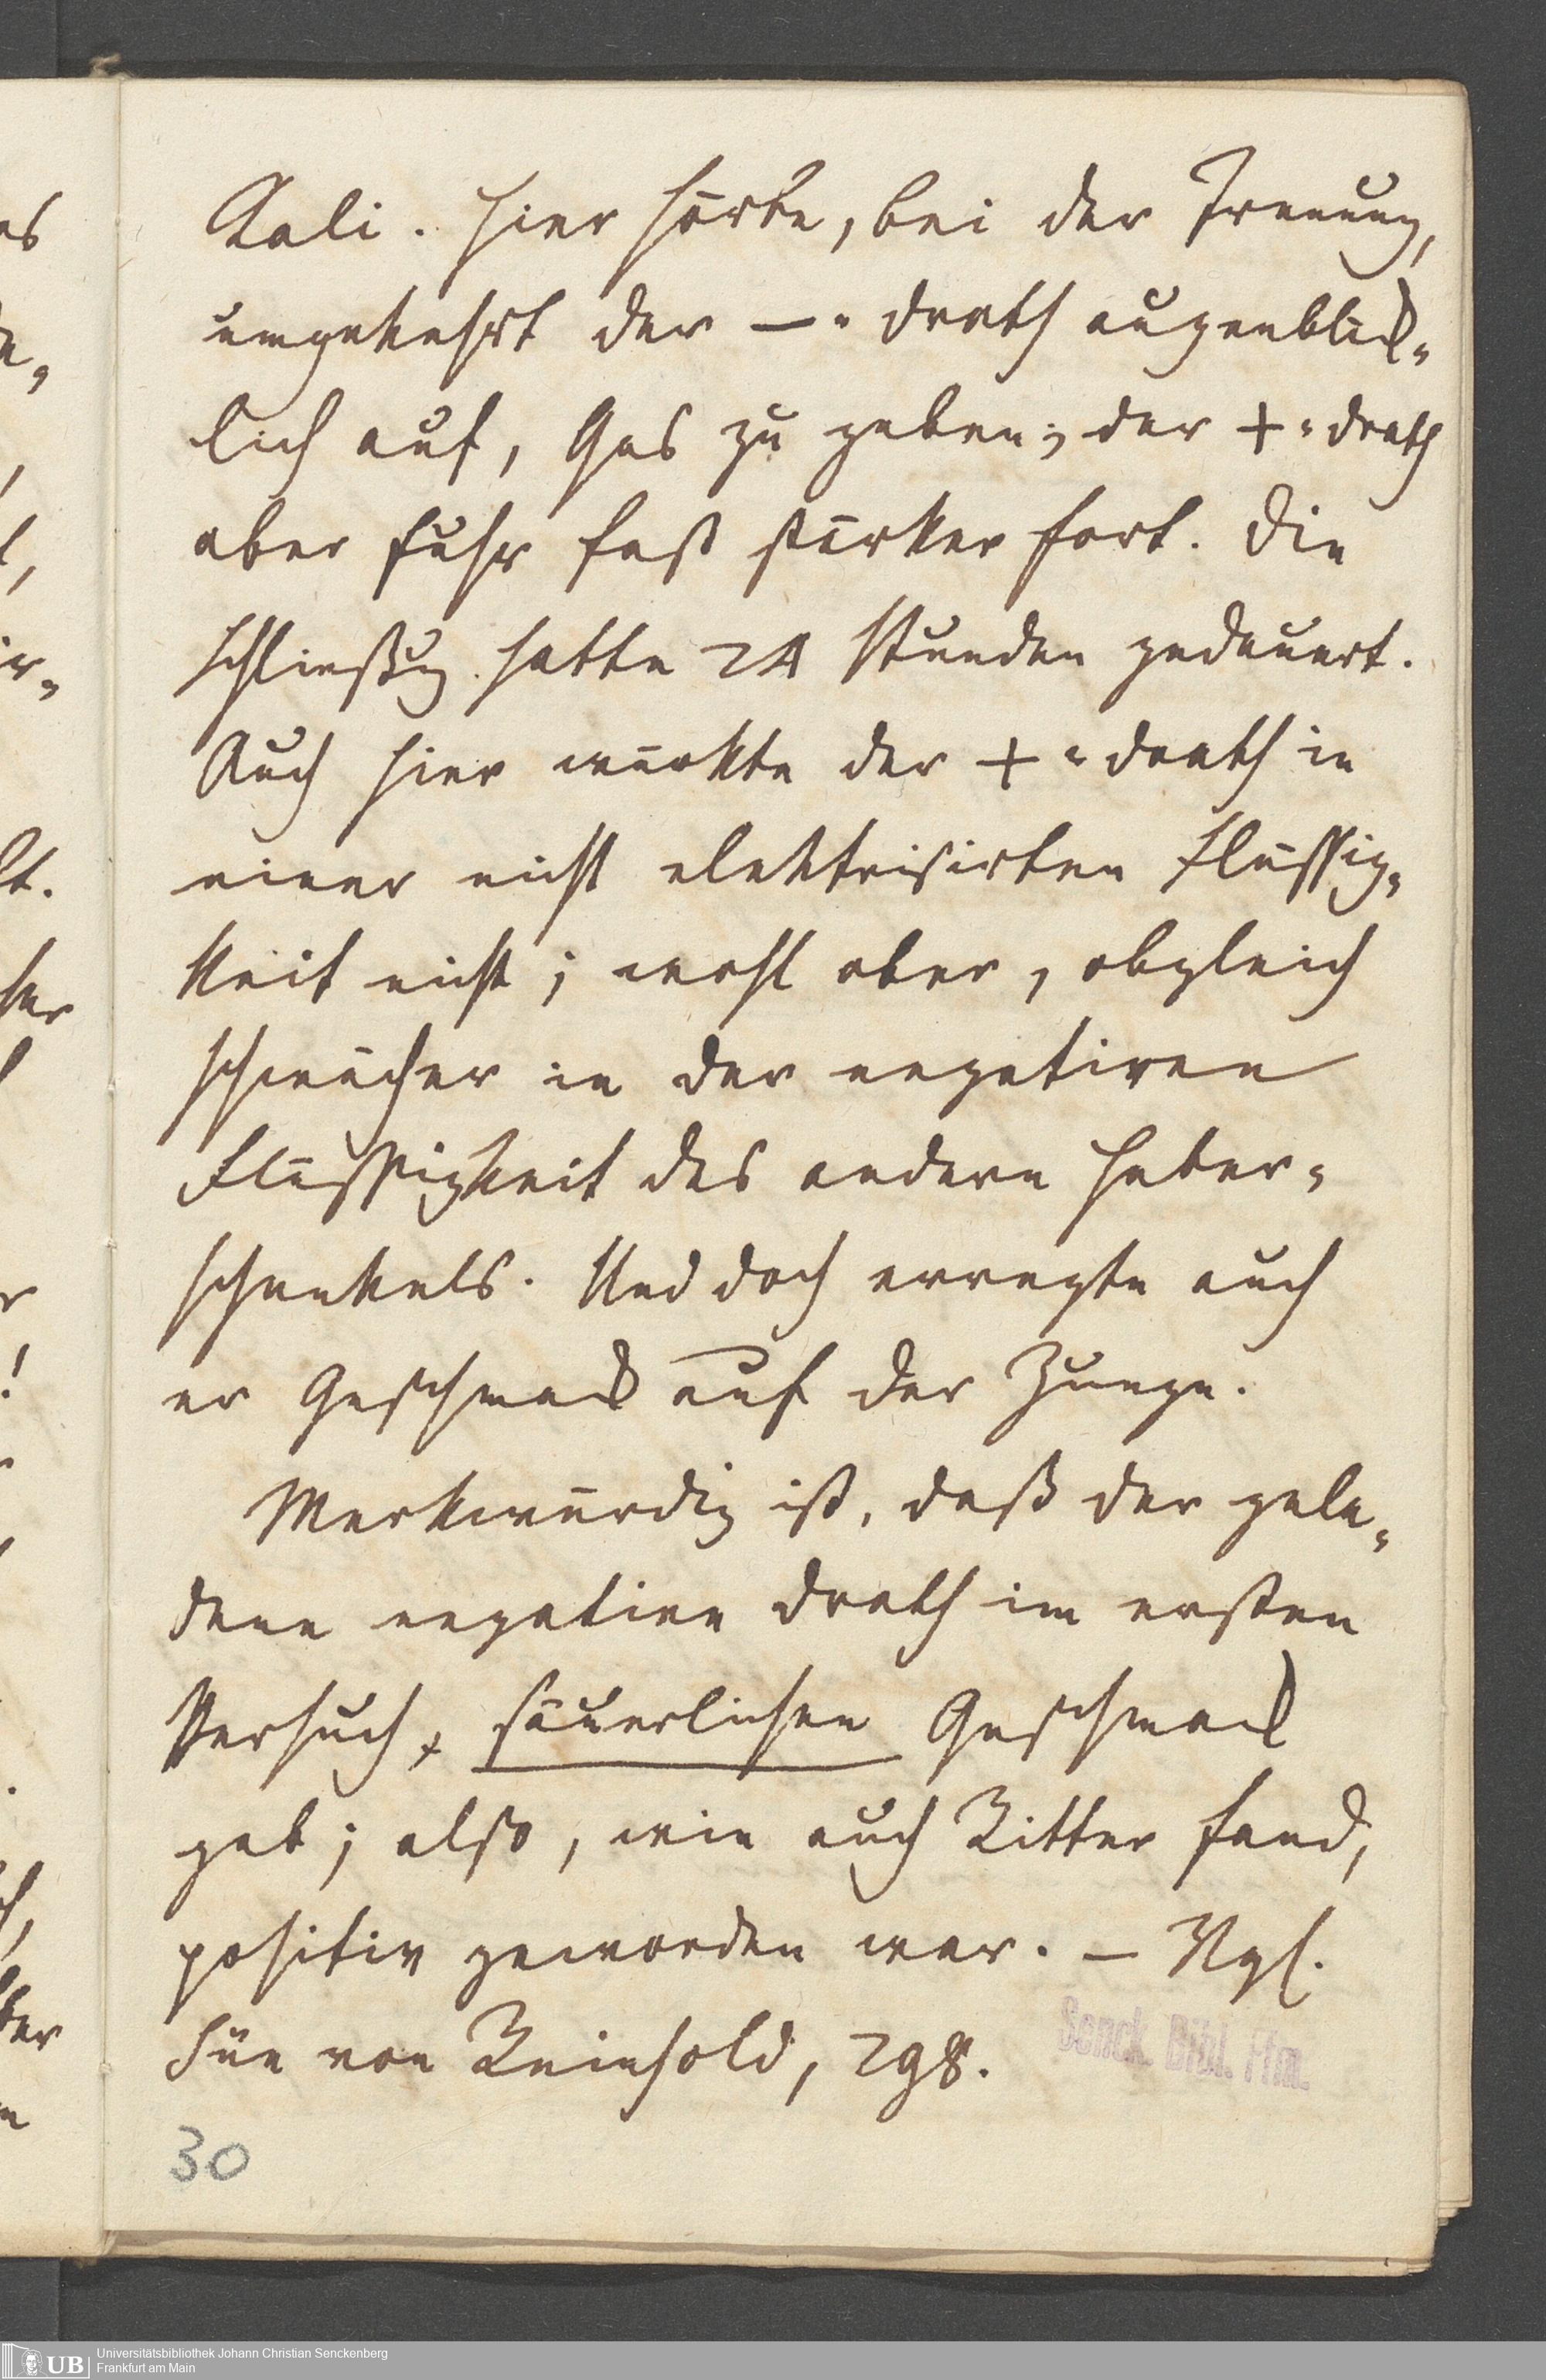 Kali. Hier hörte, bei der Trennung,
umgekehrt der —-Drath augenblick-
lich auf, Gas zu geben; der +-Drath
aber fuhr fast stärker fort. Die
Schließung hatte 24 Stunden gedauert.
Auch hier wirkte der +-Drath in
einer nicht elektrisirten Flüssig-
keit nicht; wohl aber, obgleich
schwächer in der negativen
Flüssigkeit des andern Heber-
schenkels. Und doch erregte auch
er Geschmack auf der Zunge.
Merkwürdig ist, daß der gela-
dene negative Drath im ersten
Versuch, säuerlichen Geschmack
gab; also, wie auch Ritter fand,
positiv geworden war. — Vgl.
Sue von Reinhold, 298.
Senck. Bibl. Ffm.
30
UB Universitätsbibliothek Johann Christian Senckenberg
Frankfurt am Main